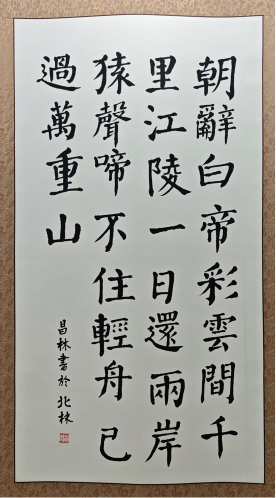 朝辭白帝彩雲間千
里江陵一日還兩岸
猿聲啼不住輕舟已
過萬重山
昌林書於北棟